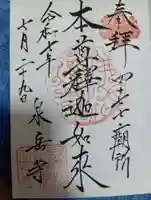 奉拝
本尊釋迦如来
令和七年
七月二十九日
泉岳寺